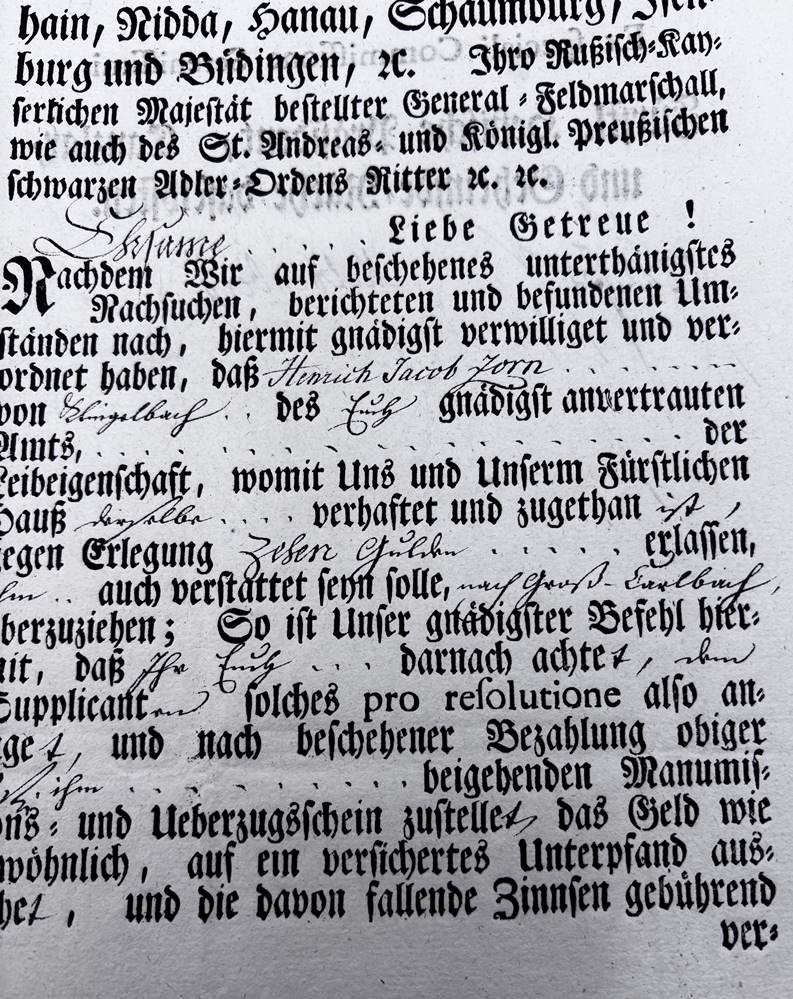 hain, Nidda, Hanau, Schaumburg, Isen-
burg und Büdingen, ꝛc. Ihro Rußisch-Kay-
serlichen Majestät bestellter General-Feldmarschall,
wie auch des St. Andreas- und Königl. Preußischen
schwarzen Adler-Ordens Ritter ꝛc. ꝛc.
Ehrsame . . . . . . Liebe Getreue !
Nachdem Wir auf beschehenes unterthänigstes
Nachsuchen, berichteten und befundenen Um-
ständen nach, hiermit gnädigst verwilliget und ver-
ordnet haben, daß Henrich Jacob Jorn . . . . . . . .
von Klingelbach . . des Euch gnädigst anvertrauten
Amts, . . . . . . . . . . . . . . . . . . . . der
Leibeigenschaft, womit Uns und Unserm Fürstlichen
Hauß derselbe . . . . verhaftet und zugethan ist ,
gegen Erlegung Zehen Gulden . . . . . . erlassen,
ihm . . auch verstattet seyn solle, nach Groß-Carlbach,
berzuziehen; So ist Unser gnädigster Befehl hier-
mit, daß Ihr Euch . . . darnach achtet, dem
Supplicanten solches pro resolutione also an-
get, und nach beschehener Bezahlung obiger
ihm . . . . . . . . . . . . beigehenden Manumis-
ons- und Ueberzugsschein zustellet, das Geld wie
wöhnlich, auf ein versichertes Unterpfand aus-
het, und die davon fallende Zinnsen gebührend
ver-